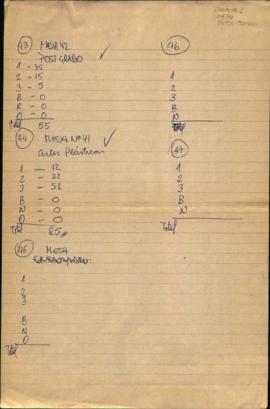 43 MESA 42
POST GRADO
1 - 35
2 - 15
3 - 5
B - 0
N - 0
O - 0
Total 55
44 MESA Nº 41
Artes Plásticas
1 - 12
2 - 22
3 - 51
B - 0
N - 0
O - 0
Total 85
45 MESA
1
2
3
B
N
O
Total
46
1
2
3
B
N
Total
47
1
2
3
B
N
Total